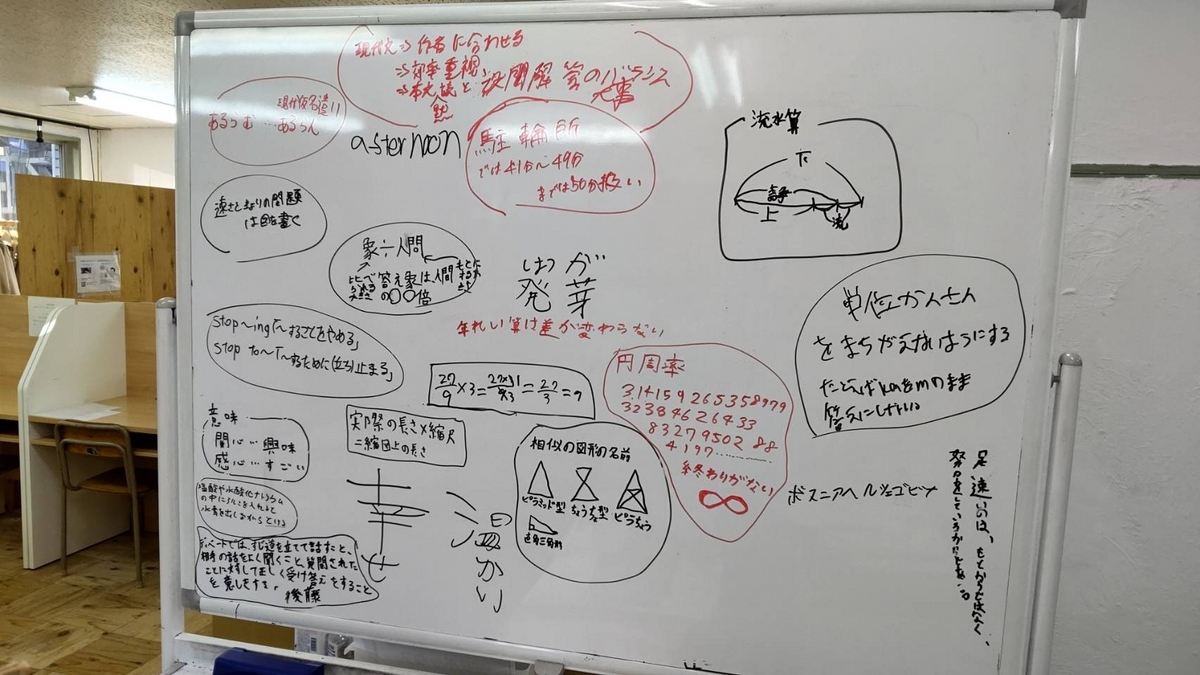 現代文⇒作者に合わせる
⇒効率重視
⇒本文読と、設問解答のバランス
現代仮名遣い
あるらむ…あるらん
asternoon
駐輪所
では41分〜49分
までは50分扱い
流水算
下
静
上
流
速さときょりの問題
は図を書く
象÷人間
答え象は人間
の〇〇倍
はつが
発芽
年れい算は差が変わらない
単位かんさん
をまちがえないようにする
たとえばkmをmのまま
答えにしない
stop~ing「~することをやめる」
stop to~「~するために(立ち)止まる」
27/9×3=27×31/9×3=27/3=9
円周率
3.14159265358979
32384626433
83279502 88
4197………
終わりがない
∞
意味
関心…興味
感心…すごい
実際の長さ×縮尺
=縮図上の長さ
相似の図形の名前
ピラミッド型
ちょうちょ型
ピラちょう
直角三角形
ボスニアヘルツェゴビナ
足 速いのは、もとからではなく、
の中に入れると
水素を出しながらとける
ディベートでは、すじ道を立てて話すこと、
相手の話をよく聞くこと、質問された
ことに対して正しく受け答えをすること
を意しきする。 後藤
幸せ
温かい